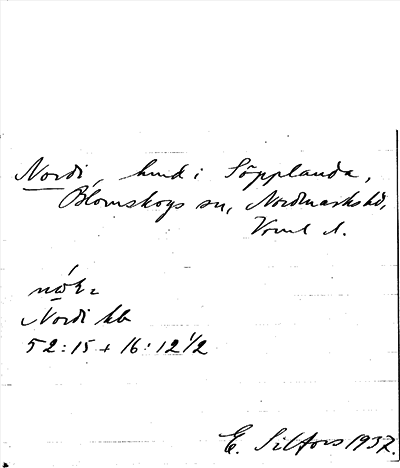 Nordi, hmd i Söpplanda,
Blomskogs sn, Nordmarks hd,
Vrml l.
Nordi kb
52:15 + 16:12 1/2
E. Silfors 1937.